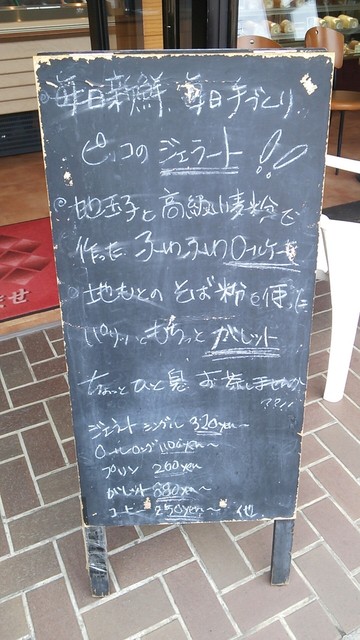 毎日新鮮 毎日手づくり
ピッコの ジェラート !!
地玉子と高級小麦粉で
作った ふわふわロールケーキ
地もとの そば粉を使った
パリッともちっと ガレット
ちょっとひと息 お茶しませんか
ジェラート シングル 320yen〜
ロールロング 1100yen〜
プリン 260yen〜
ガレット 280yen〜
コーヒー 250yen〜 他
ませ